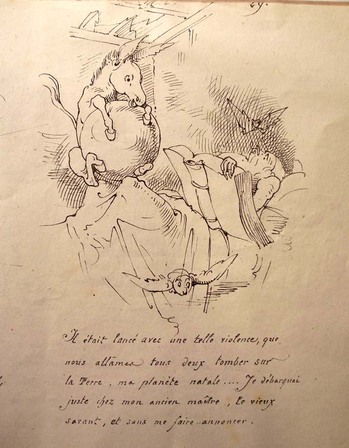 69.
Il était lancé avec une telle violence, que
nous allames tous deux tomber sur
la Terre, ma planète natale.... Je débarquai
juste chez mon ancien maître, le vieux
savant, et sans me faire annoncer.